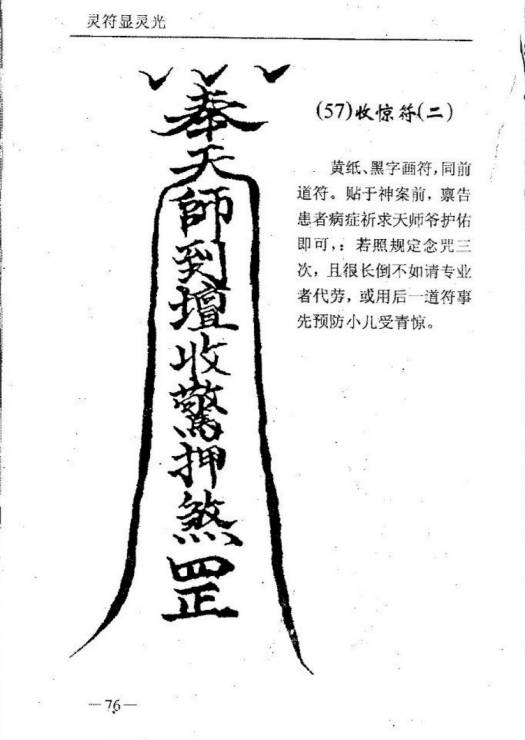 灵符显灵光
(57)收惊符(二)
黄纸、黑字画符,同前
道符。贴于神案前,禀告
患者病症祈求天师爷护佑
即可,:若照规定念咒三
次,且很长倒不如请专业
者代劳,或用后一道符事
先预防小儿受青惊。
奉
天
師
到
壇
收
驚
押
煞
罡
—76—